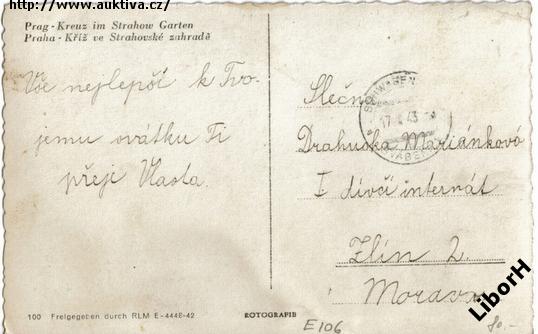 http://www.auktiva.cz/
Prag - Kreuz im Strahow Garten
Praha - Kříž ve Strahovské zahradě
Vše nejlepší k Tvo-
jemu svátku Ti
přeji Vlasta.
Slečna
Drahuška Mariánková
I dívčí internát
Zlín 2.
Morava
17 43
100 Freigegeben durch RLM E-444E-42
ROTOGRAFIE
E106
80.-
LiborH